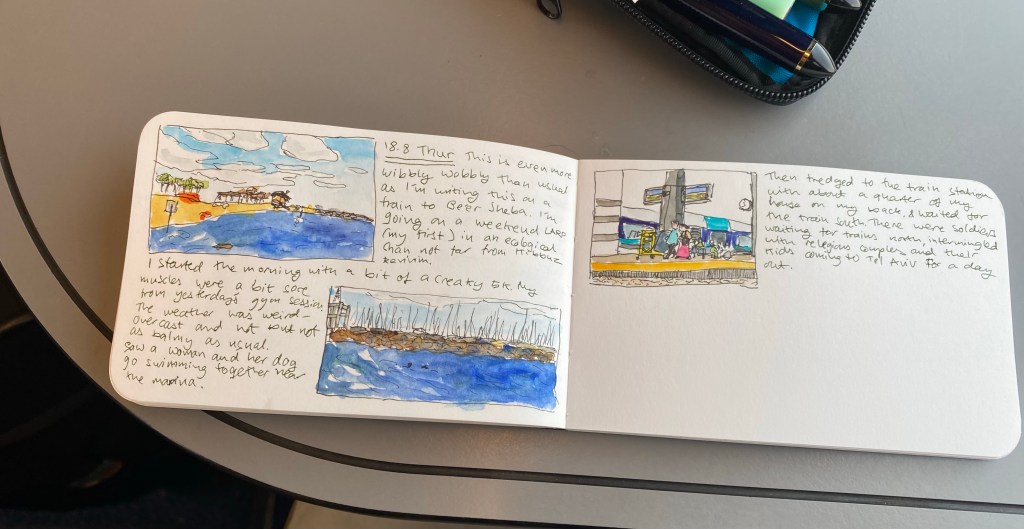 18.8 Thur This is even more
wibbly wobbly than usual
as I'm writing this on a
train to Beer Sheba. I'm
going on a weekend LARP
(my first) in an ecological
Chan not far from Kibbutz
I started the morning with a bit of a creaky 5k. My
muscles were a bit sore
from yesterdays gym session
The weather was weird –
overcast and hot but not
as balmy as usual.
Saw a woman and her dog
go swimming together near
the marina.
Then tredged to the train station
with about a quater of my
house on my back. I waited for
the train south. There were soldiers
waiting for trains north, intermingled
with religious couples and their
kids coming to Tel Aviv for a day
out.